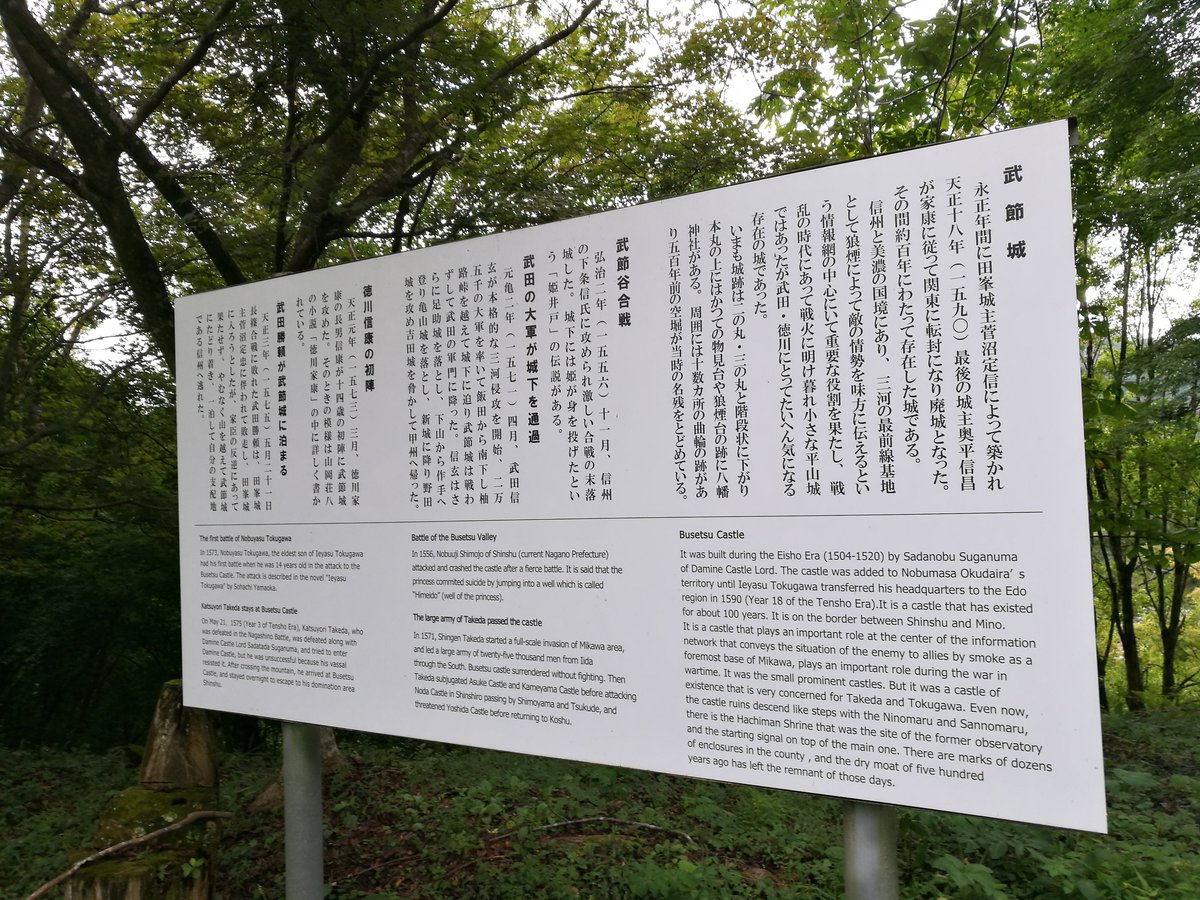 武節城
永正年間に田峯城主菅沼定信によって築かれ
天正十八年（一五九〇）最後の城主奥平信昌
が家康に従って関東に転封になり廃城となった。
その間約百年にわたって存在した城である。
信州と美濃の国境にあり、三河の最前線基地
として狼煙によって敵の情勢を味方に伝えるとい
う情報網の中心にいて重要な役割を果たし、戦
乱の時代にあって戦火に明け暮れ小さな平山城
ではあったが武田・徳川にとってたいへん気になる
存在の城であった。
いまも城跡は二の丸・三の丸と階段状に下がり
本丸の上にはかつての物見台や狼煙台の跡に八幡
神社がある。周囲には十数カ所の曲輪の跡があ
り五百年前の空堀が当時の名残をとどめている。
武節谷合戦
弘治二年（一五五六）十一月、信州
の下条信氏に攻められ激しい合戦の末落
城した。城下には姫が身を投げたとい
う「姫井戸」の伝説がある。
武田の大軍が城下を通過
元亀二年（一五七一）四月、武田信
玄が本格的な三河侵攻を開始、二万
五千の大軍を率いて飯田から南下し柚
路峠を越えて城下に迫り武節城は戦わ
ずして武田の軍門に降った。信玄はさ
らに足助城を落とし、下山から作手へ
登り亀山城を落とし、新城に降り野田
城を攻め吉田城を脅かして甲州へ帰った。
徳川信康の初陣
天正元年（一五七三）三月、徳川家
康の長男信康が十四歳の初陣に武節城
を攻めた。そのときの模様は山岡荘八
の小説「徳川家康」の中に詳しく書か
れている。
武田勝頼が武節城に泊まる
天正三年（一五七五）五月二十一日
長篠合戦に敗れた武田勝頼は、田峯城
主菅沼定忠に伴われて敗走し、田峯城
に入ろうとしたが、家臣の反逆にあって
果たせず、やむなく山を越えて武節城
にたどり着き、一泊して自分の支配地
である信州へ逃れた。
The first battle of Nobuyasu Tokugawa
In 1573, Nobuyasu Tokugawa, the eldest son of Ieyasu Tokugawa
had his first battle when he was 14 years old in the attack to the
Busetsu Castle. The attack is described in the novel "Ieyasu
Tokugawa" by Sohachi Yamaoka.
Katsuyori Takeda stays at Busetsu Castle
On May 21, 1575 (Year 3 of Tensho Era), Katsuyori Takeda, who
was defeated in the Nagashino Battle, was defeated along with
Damine Castle Lord Sadatada Suganuma, and tried to enter
Damine Castle, but he was unsuccessful because his vassal
resisted it. After crossing the mountain, he arrived at Busetsu
Castle, and stayed overnight to escape to his domination area
Shinshu.
Battle of the Busetsu Valley
In 1556, Nobuuji Shimojo of Shinshu (current Nagano Prefecture)
attacked and crashed the castle after a fierce battle. It is said that the
princess commited suicide by jumping into a well which is called
"Himeido" (well of the princess).
The large army of Takeda passed the castle
In 1571, Shingen Takeda started a full-scale invasion of Mikawa area,
and led a large army of twenty-five thousand men from Iida
through the South. Busetsu castle surrendered without fighting. Then
Takeda subjugated Asuke Castle and Kameyama Castle before attacking
Noda Castle in Shinshiro passing by Shimoyama and Tsukude, and
threatened Yoshida Castle before returning to Koshu.
Busetsu Castle
It was built during the Eisho Era (1504-1520) by Sadanobu Suganuma
of Damine Castle Lord. The castle was added to Nobumasa Okudaira's
territory until Ieyasu Tokugawa transferred his headquarters to the Edo
region in 1590 (Year 18 of the Tensho Era).It is a castle that has existed
for about 100 years. It is on the border between Shinshu and Mino.
It is a castle that plays an important role at the center of the information
network that conveys the situation of the enemy to allies by smoke as a
foremost base of Mikawa, plays an important role during the war in
wartime. It was the small prominent castles. But it was a castle of
existence that is very concerned for Takeda and Tokugawa. Even now,
the castle ruins descend like steps with the Ninomaru and Sannomaru,
there is the Hachiman Shrine that was the site of the former observatory
and the starting signal on top of the main one. There are marks of dozens
of enclosures in the county , and the dry moat of five hundred
years ago has left the remnant of those days.